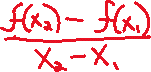 f(x₂) - f(x₁)
x₂ - x₁